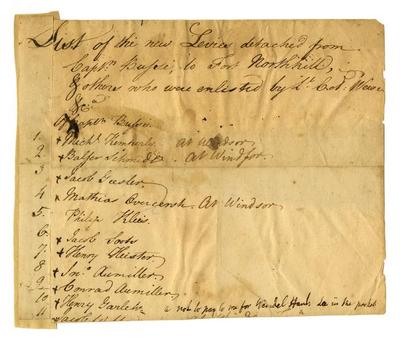 List of the new Levies detached from
Captn. Busse; to Fort Northkill,
& others who were enlisted by Lt. Col. Weiser
Captn Busse.
1. + Michl. Kimberly at Windsor
2. + Balser Schmidt. at Windsor.
3. + Jacob Geesler.
4. + Mathias Overcersh. At Windsor
5. Philip Kleis.
6. + Jacob
7. + Henry Heister
8. + Jno. Aumiller.
9. + Conrad Aumiller,
10. + Henry not to pay to me for in the
11. + Jacob